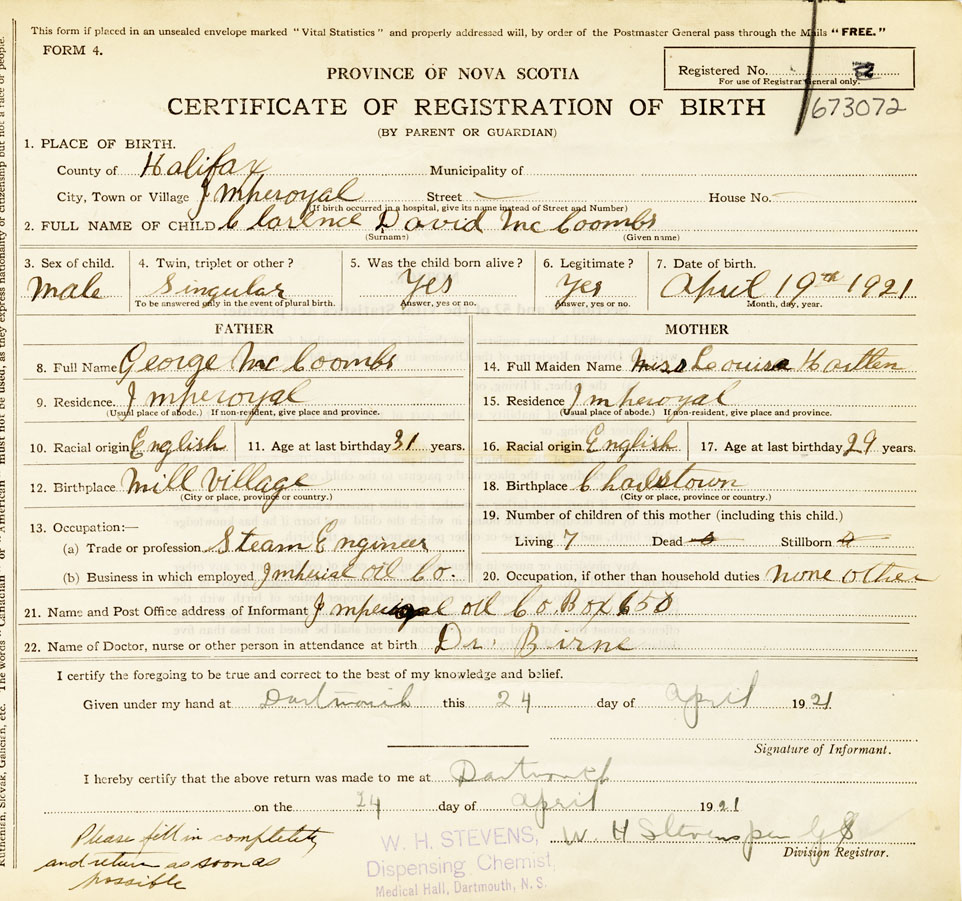 This form if placed in an unsealed envelope marked "Vital Statistics" and properly addressed will, by order of the Postmaster General pass through the Mails "FREE."
FORM 4.
Registered No. 2
For use of Registrar General only.
PROVINCE OF NOVA SCOTIA
CERTIFICATE OF REGISTRATION OF BIRTH
673072
(BY PARENT OR GUARDIAN)
1. PLACE OF BIRTH.
County of Halifax Municipality of
City, Town or Village Imperoyal Street House No.
(If birth occurred in a hospital, give its name instead of Street and Number)
2. FULL NAME OF CHILD Clarence David McCoombs
(Surname) (Given name)
3. Sex of child. 4. Twin, triplet or other? 5. Was the child born alive? 6. Legitimate? 7. Date of birth.
Male Singular Yes Yes April 19th 1921
To be answered only in the event of plural birth. Answer, yes or no. Answer, yes or no. Month, day, year.
FATHER MOTHER
8. Full Name George McCoombs 14. Full Maiden Name Miss Louise
9. Residence. Imperoyal 15. Residence Imperoyal
(Usual place of abode.) If non-resident, give place and province. (Usual place of abode.) If non-resident, give place and province.
10. Racial origin English 11. Age at last birthday 31 years. 16. Racial origin English 17. Age at last birthday 29 years.
12. Birthplace Mill Village 18. Birthplace
(City or place, province or country.) (City or place, province or country.)
13. Occupation:— 19. Number of children of this mother (including this child.)
(a) Trade or profession Steam Engineer Living 7 Dead Stillborn
(b) Business in which employed Imperial Oil Co. 20. Occupation, if other than household duties none other
21. Name and Post Office address of Informant Oil Co. Box 650
22. Name of Doctor, nurse or other person in attendance at birth Dr. Birne
I certify the foregoing to be true and correct to the best of my knowledge and belief.
Given under my hand at Dartmouth this 24 day of April 1921
Signature of Informant.
I hereby certify that the above return was made to me at Dartmouth
on the 24 day of April 1921
W. H Stevens per
Division Registrar.
W. H. STEVENS,
Dispensing Chemist,
Medical Hall, Dartmouth, N. S.
Please fill in completely
and return as soon as
possible